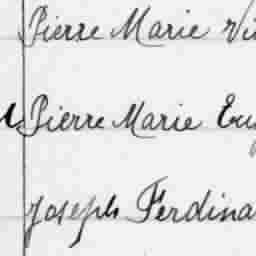 Pierre Marie Vi
Pierre Marie Eu
Joseph Ferdina